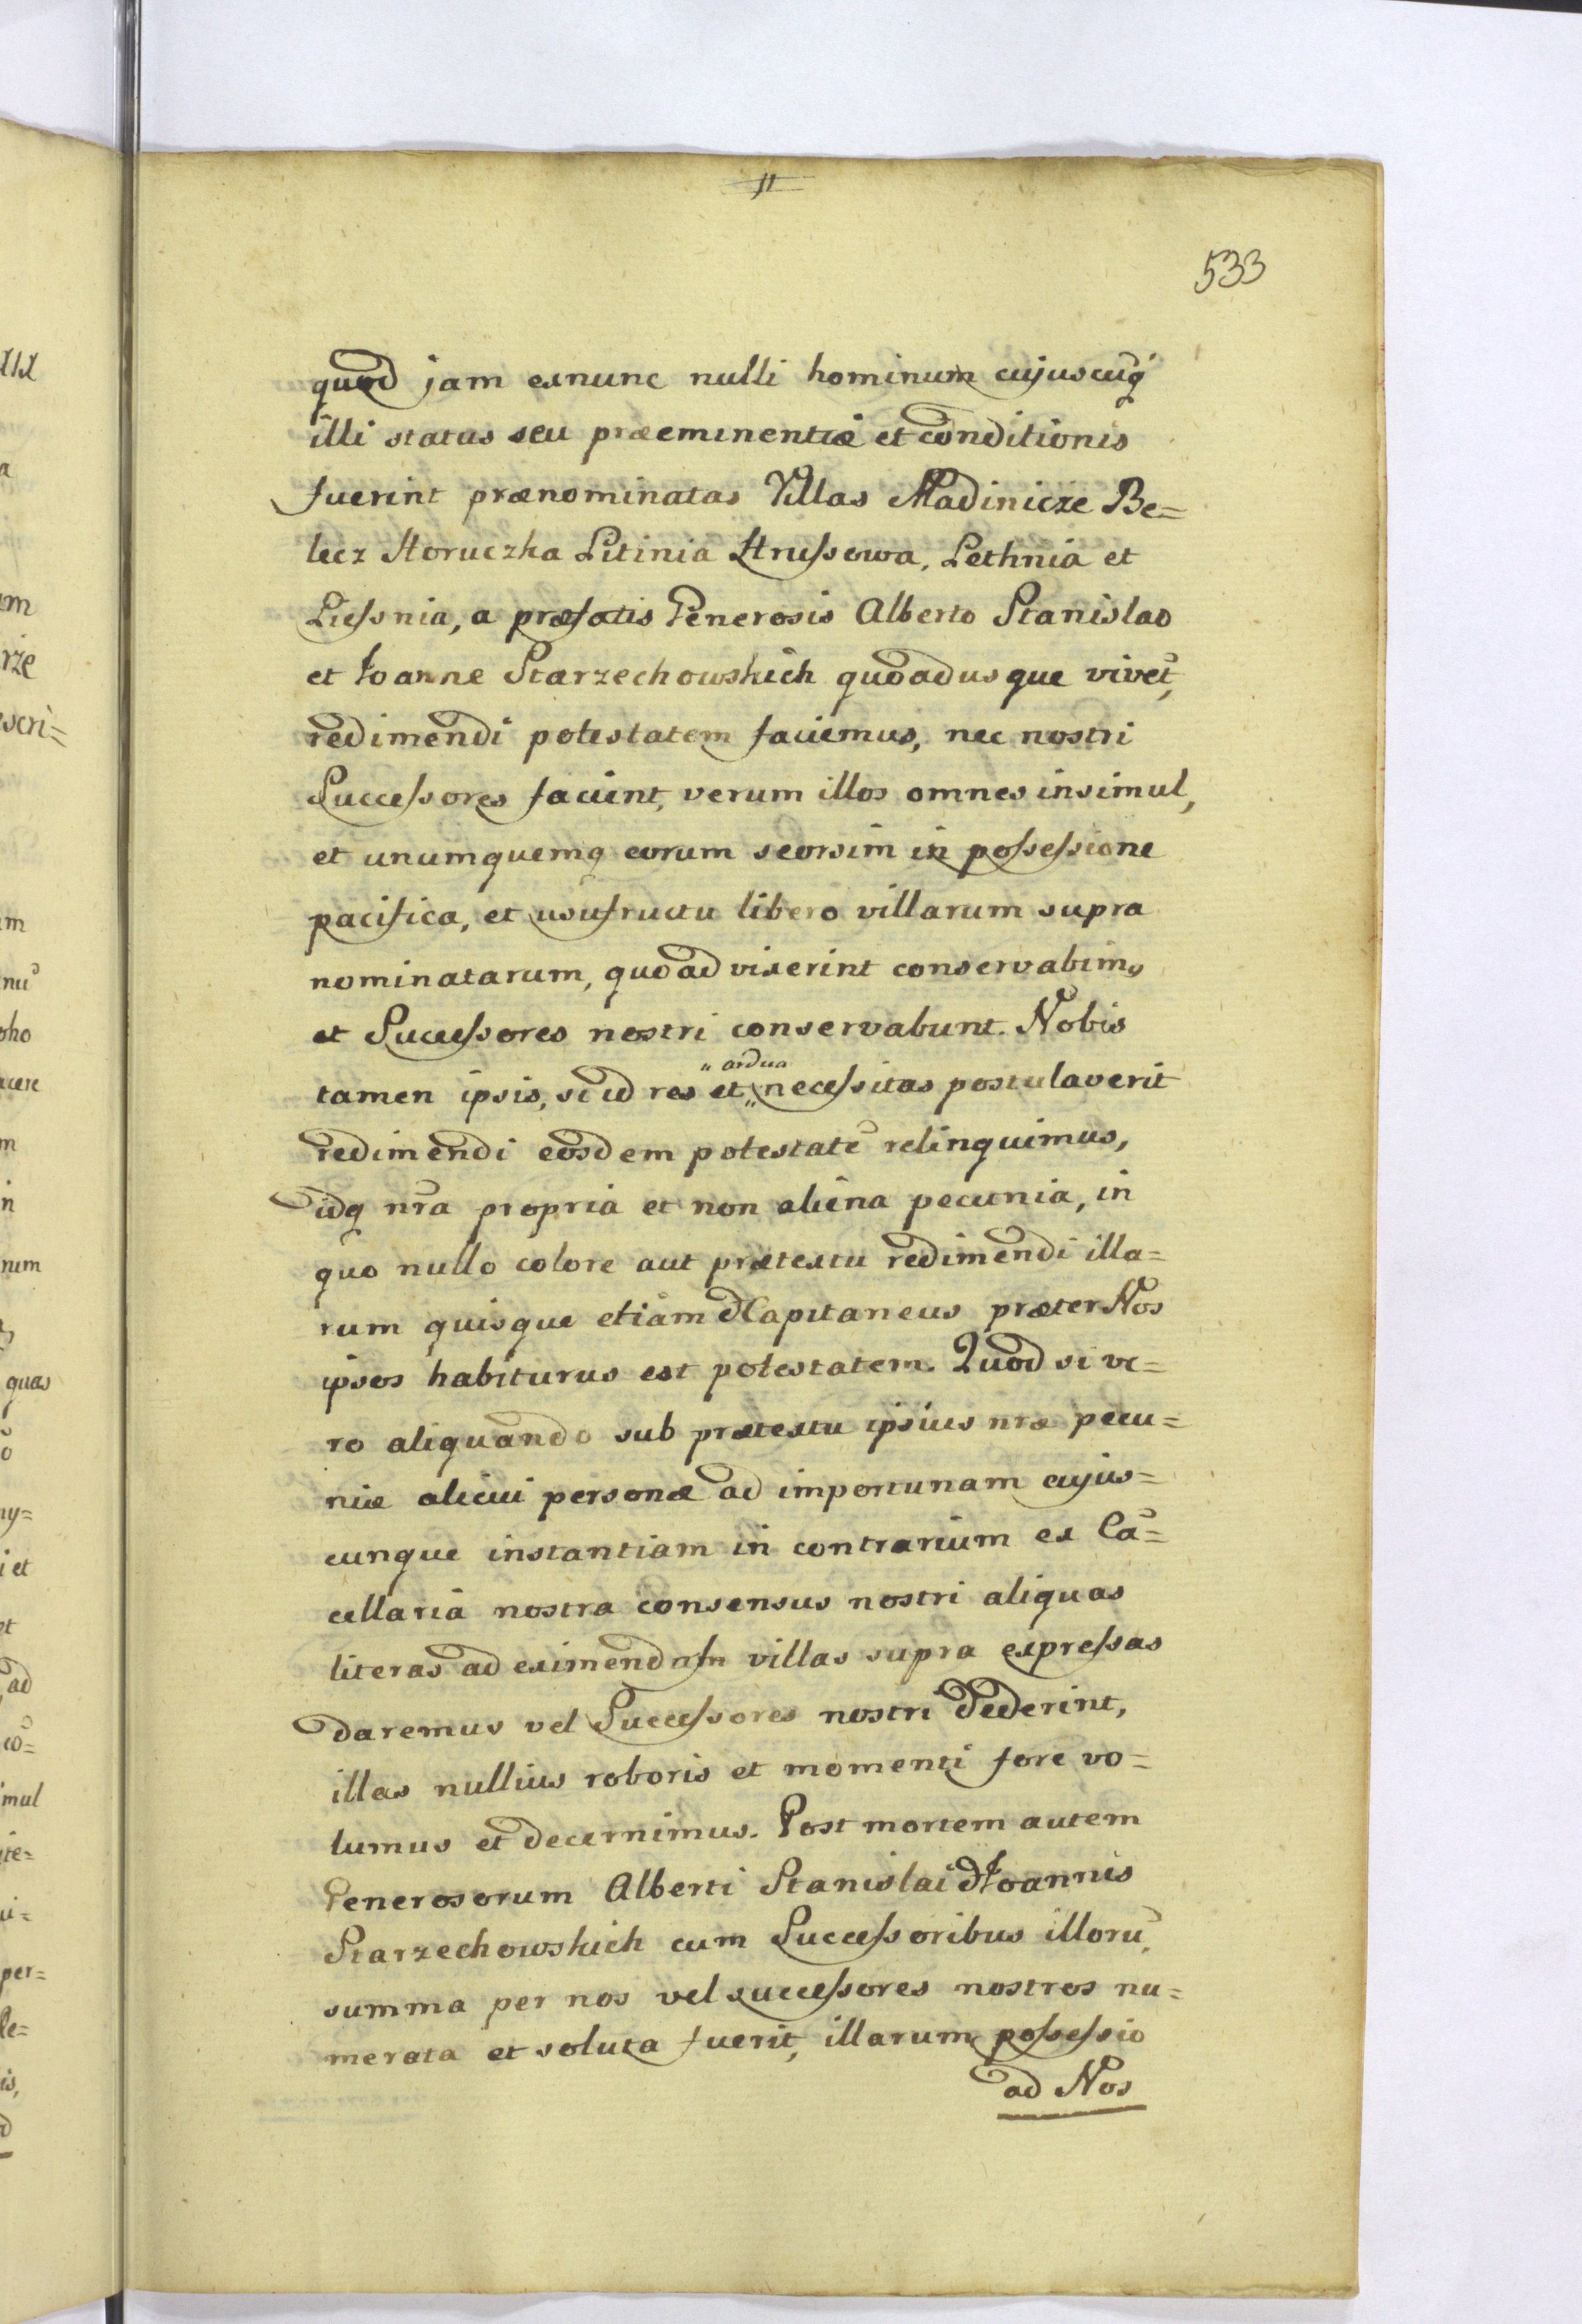 11
533
quod jam exnunc nulli hominum cujuscuq́
illi status seu præeminentiæ et conditionis
fuerint prænominatas Villas Madinicze Be=
lecz Horuczka Litinia Hrussowa, Lethnia et
Liessnia, a præfatis Generosis Alberto Stanislao
et Joanne Starzechowskich quoadusque vivēt,
redimendi potestatem faciemus, nec nostri
Successores facient, verum illos omnes insimul,
et unumquemq eorum seorsim in possessione
pacifica, et usufructu libero villarum supra
nominatarum, quoad vixerint conservabimꝯ
et Successores nostri conservabunt. Nobis
tamen ipsis, si id res et " ardua necessitas postulaverit
redimendi eosdem potestatē relinquimus,
idq nr̃a propria et non aliena pecunia, in
quo nullo colore aut prætextu redimendi illa=
rum quisque etiam Capitaneus præter Nos
ipsos habiturus est potestatem. Quod si ve=
ro aliquando sub prætextu ipsius nræ pecu=
niæ alicui personæ ad importunam cujus=
cunque instantiam in contrarium ex Cā=
cellaria nostra consensus nostri aliquas
literas ad eximendum villas supra expressas
daremus vel Successores nostri dederint,
illas nullius roboris et momenti fore vo=
lumus et decernimus. Post mortem autem
Generosorum Alberti Stanislai & Joannis
Starzechowskich cum Successoribus illorū,
summa per nos vel successores nostros nu=
merata et soluta fuerit, illarum possessio
ad Nos